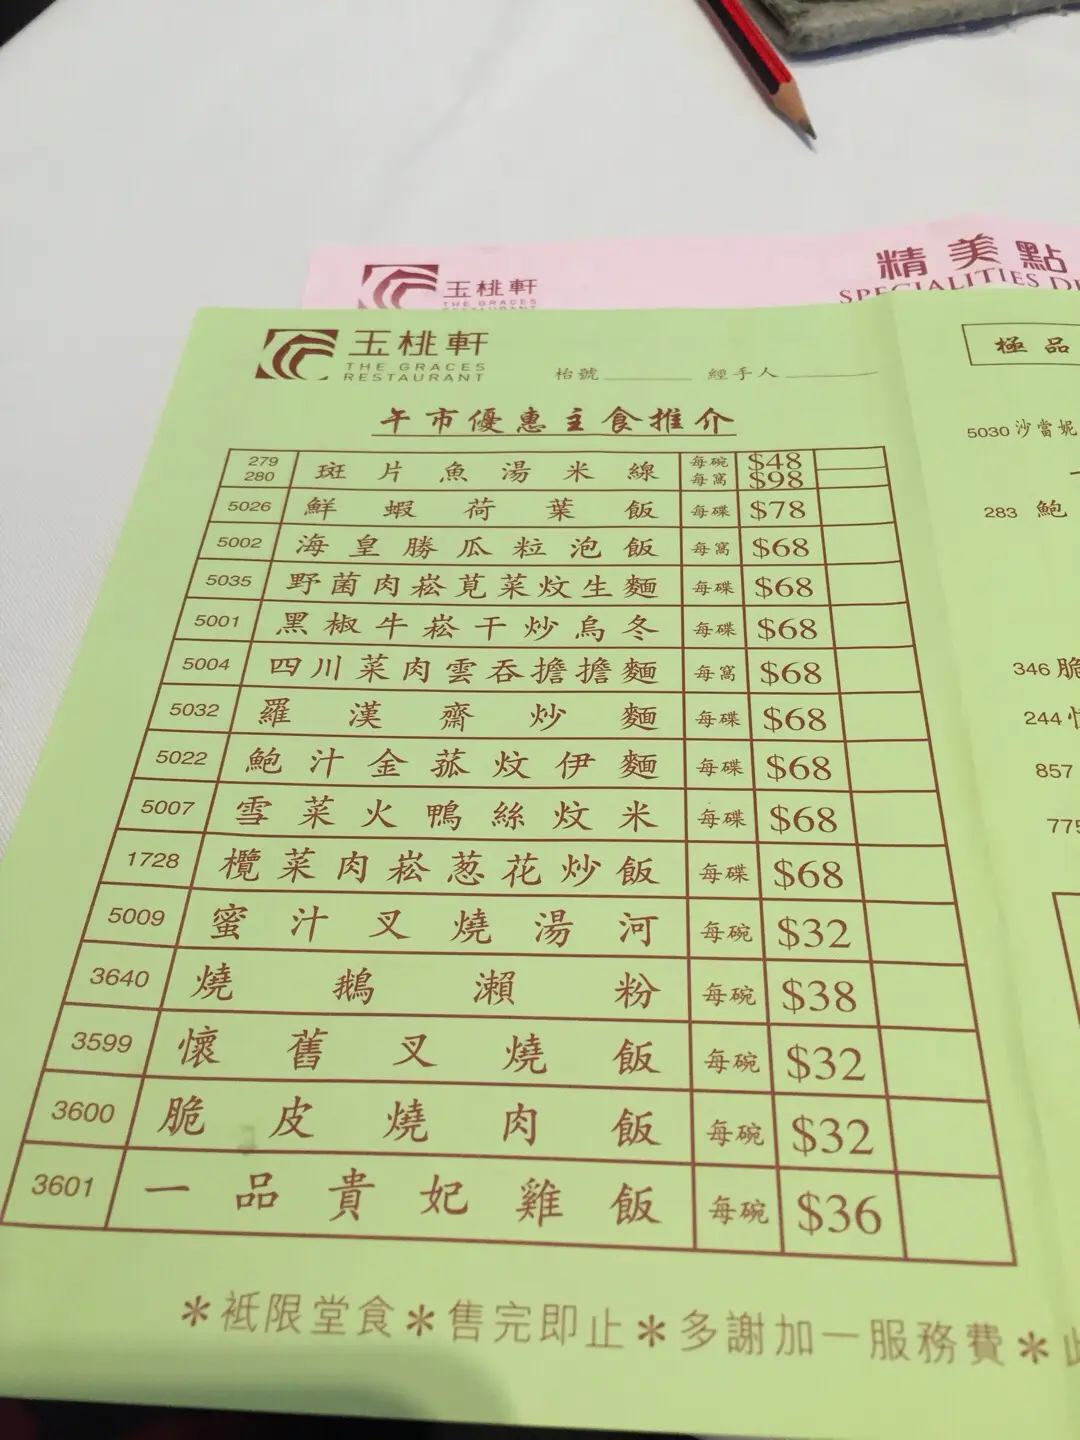 精美點
SPECIALITIES D
玉桃軒
THE GRACES
RESTAURANT
玉桃軒
THE GRACES
RESTAURANT
枱號 經手人
午市優惠主食推介
279 280 斑片魚湯米線 每碗 $48 每窩 $98
5026 鮮蝦荷葉飯 每碟 $78
5002 海皇勝瓜粒泡飯 每窩 $68
5035 野菌肉崧莧菜炆生麵 每碟 $68
5001 黑椒牛崧干炒烏冬 每碟 $68
5004 四川菜肉雲吞擔擔麵 每窩 $68
5032 羅漢齋炒麵 每碟 $68
5022 鮑汁金菰炆伊麵 每碟 $68
5007 雪菜火鴨絲炆米 每碟 $68
1728 欖菜肉崧葱花炒飯 每碟 $68
5009 蜜汁叉燒湯河 每碗 $32
3640 燒鵝瀨粉 每碗 $38
3599 懷舊叉燒飯 每碗 $32
3600 脆皮燒肉飯 每碗 $32
3601 一品貴妃雞飯 每碗 $36
*衹限堂食*售完即止*多謝加一服務費*
極品
5030 沙當妮
283 鮑
346 脆
244
857
775